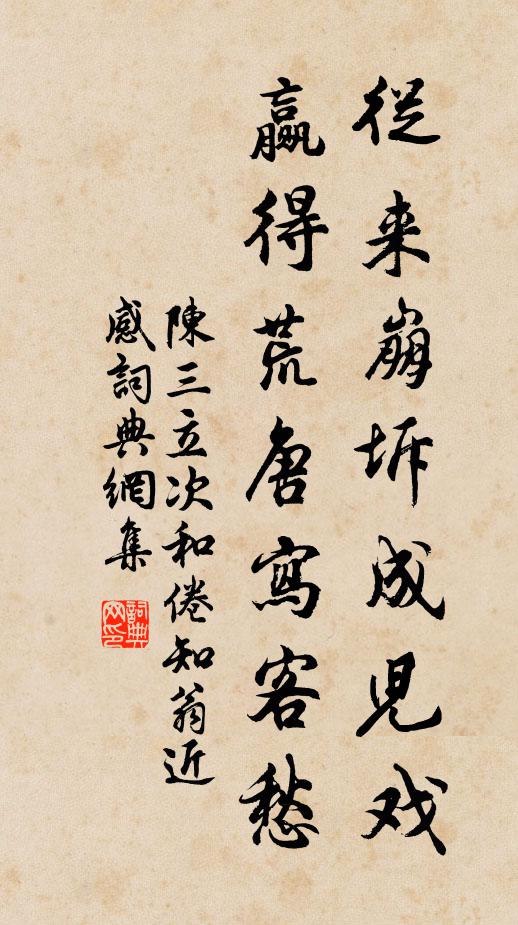 從来崩坼成児戏
赢得荒唐寫客愁
陳三立次和倦知翁近
感詞典網集
詞典网印